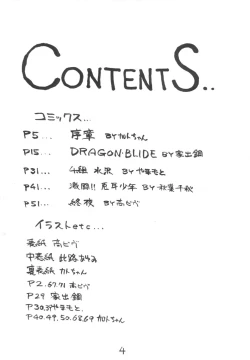 CONTENTS..
コミックス...
P5... 序章 BYカトちゃん
P15... DRAGON・BLIDE BY家出鋼
P31... 4組 水沢 BYやまもと
P41... 激闘!! 忍耳少年 BY秋葉千秋
P51... 終夜 BY高ピヴ
イラストetc...
表紙 高ピヴ
中表紙 此路あゆみ
裏表紙 カトちゃん
P2.67.71 高ピヴ
P29 家出鋼
P30.39やまもと.
P40.49.50.68.69 カトちゃん
4